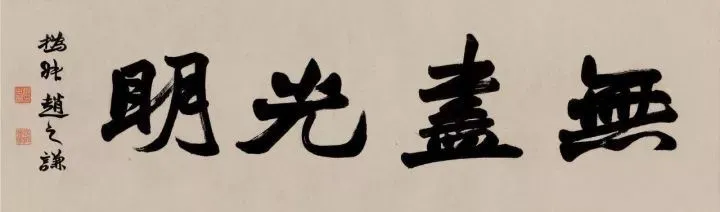 無盡光明
撝叔趙之謙